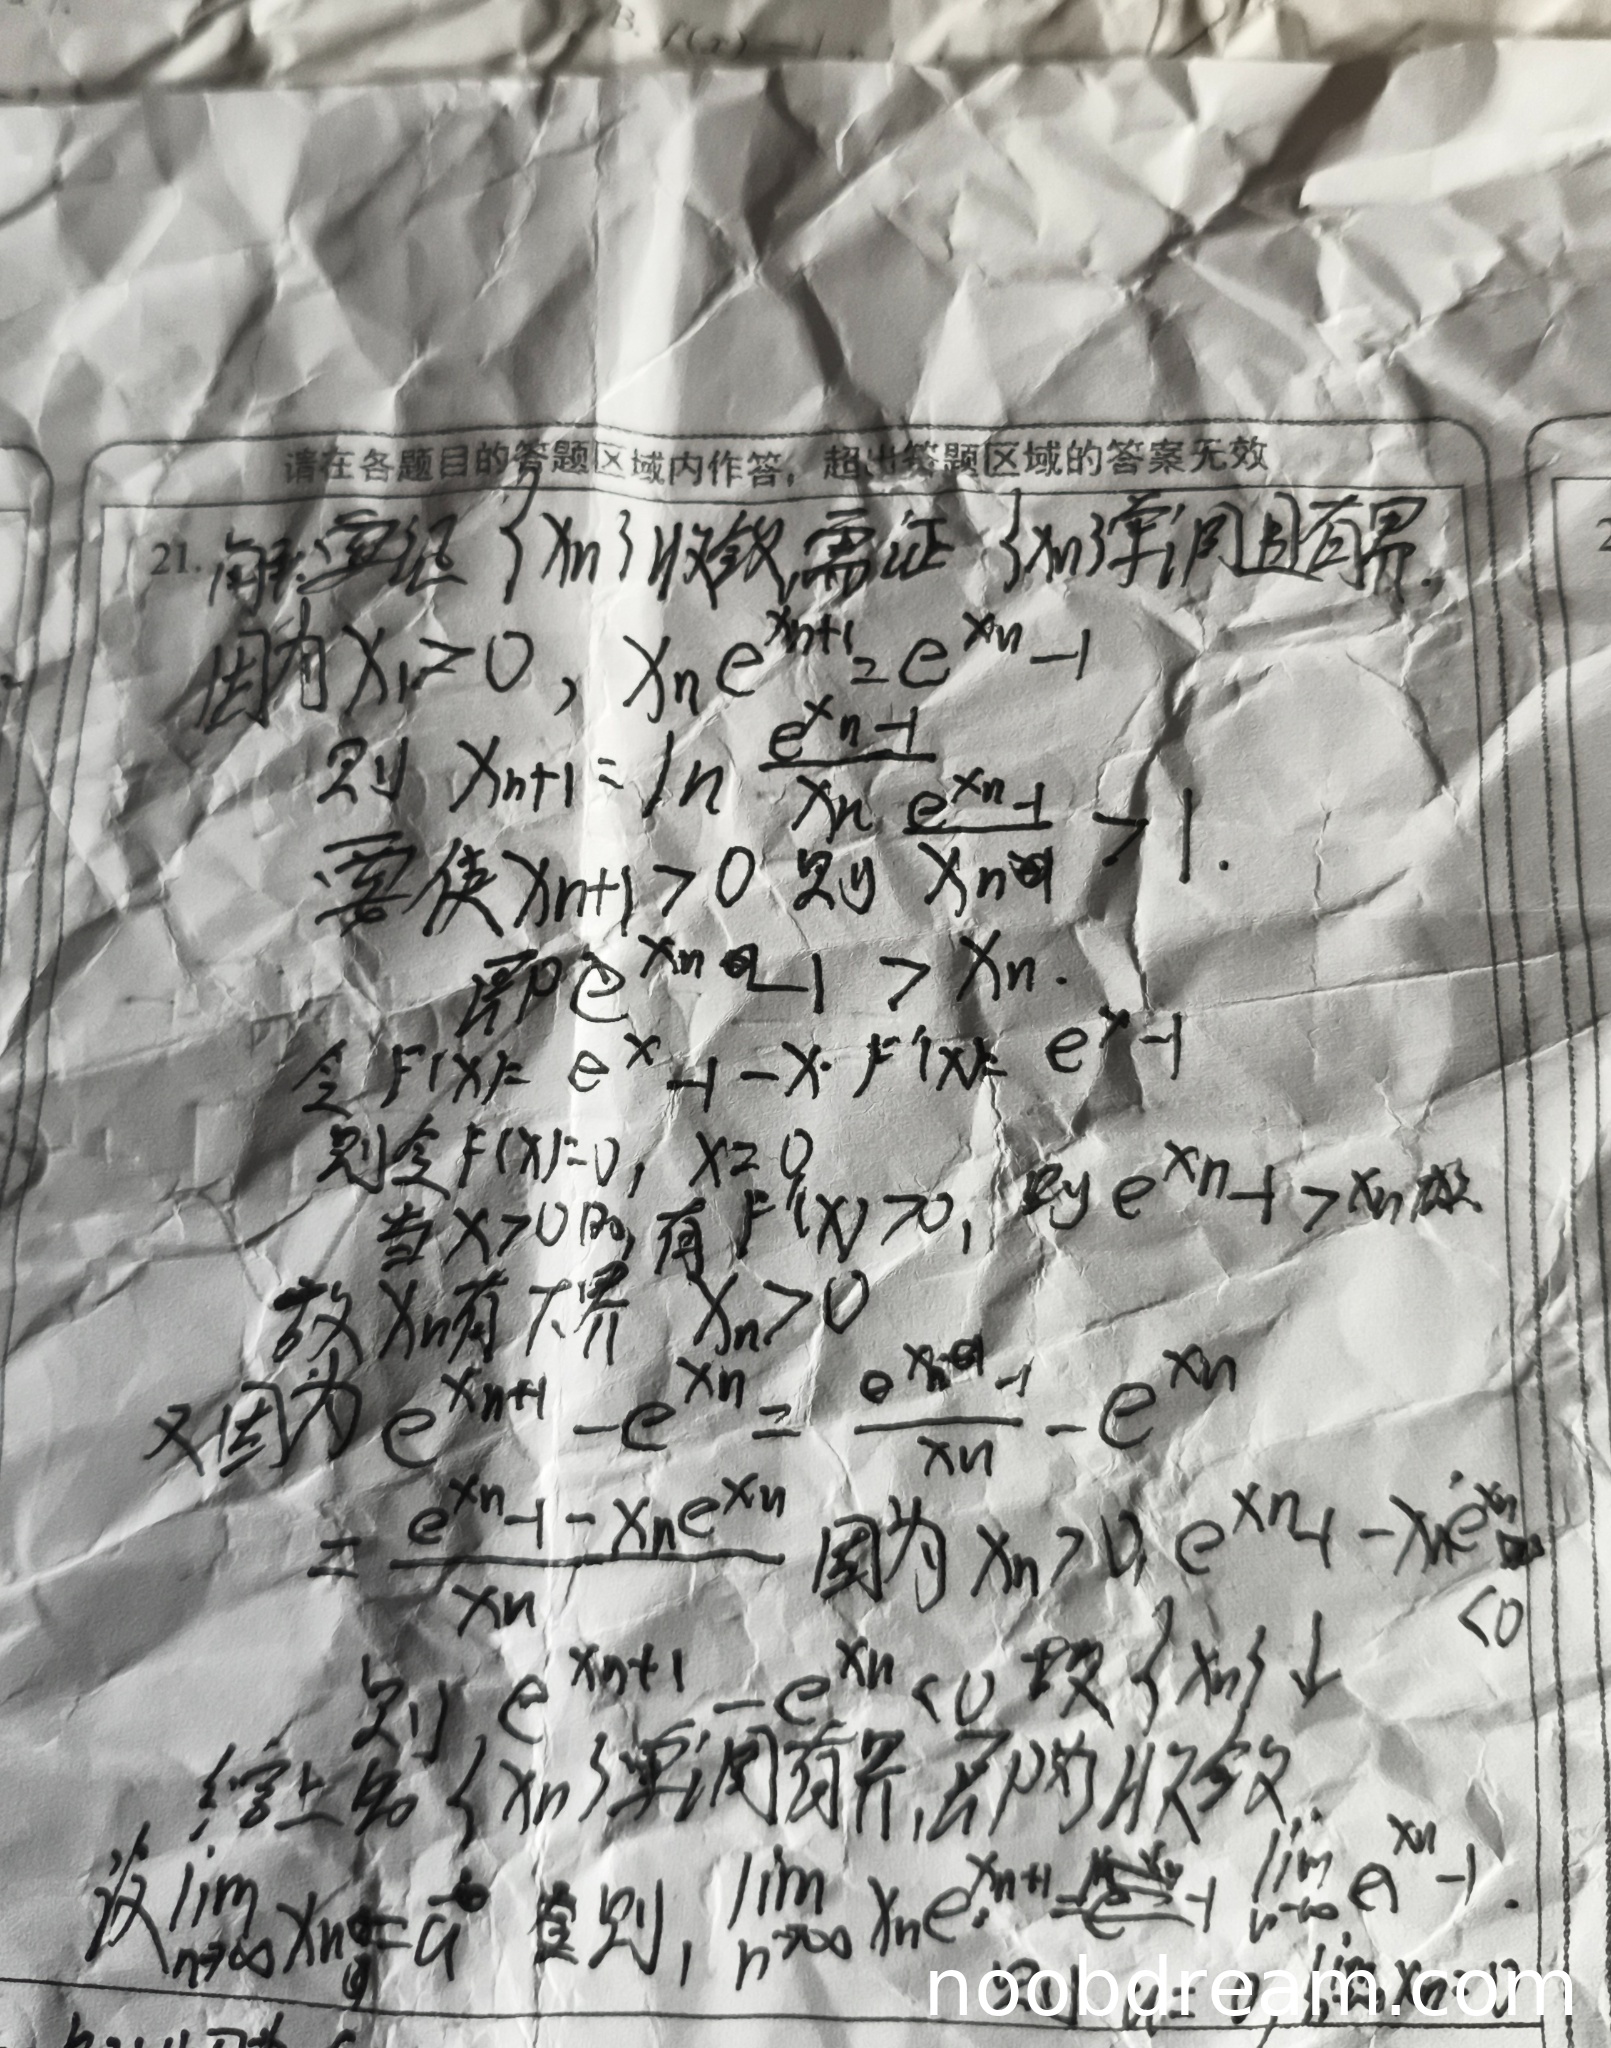 B. f(x)
请在各题目的答题区域内作答，超出答题区域的答案无效
21. 解:要证 {xn}收敛,需证 {xn}单调且有界.
因为 x₁>0, xn e^(xn+1) = e^(xn) -1
则 xn+1 = ln (e^(xn)-1)/xn
要使 xn+1>0 则 (e^(xn)-1)/xn >1.
即 e^(xn) -1 > xn.
令 F(x)= e^x -1-x. F'(x)= e^x-1
则令 F'(x)=0, x=0,
当 x>0时,有 F'(x)>0, 则 e^(xn)-1>xn 故
故 xn有下界 xn>0
又因为 e^(xn+1) - e^(xn) = (e^(xn)-1)/xn - e^(xn)
= (e^(xn)-1-xn e^(xn))/xn 因为 xn>0, e^(xn)-1-xn e^(xn) <0
则 e^(xn+1) - e^(xn) <0 故 {xn}↓
综上知 {xn}单调有界,即为收敛.
设 lim n→∞ xn = a 则, lim n→∞ xn e^(xn+1) = lim n→∞ e^(xn) -1.
则 a=0, lim xn=0
noobdream.com